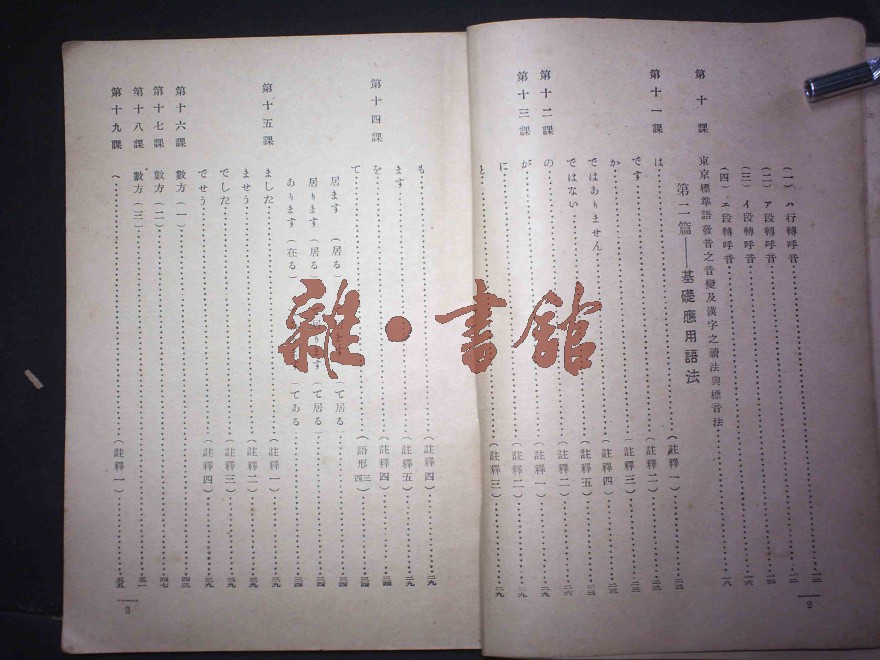 (一) ハ行轉呼音 一二
(二) ア段轉呼音
(三) イ段轉呼音 一六
(四) エ段轉呼音 一八
第十課 東京標準語發音之音變及漢字之讀法與標音法
第二篇——基礎應用語法
第十一課 は (註釋一) 二三
です (註釋二) 二三
か (註釋三) 二三
ではありません (註釋四) 二三
ではない (註釋五) 二三
第十二課 の (註釋二) 二六
第十三課 が (註釋一) 二九
に (註釋二) 二九
と (註釋三) 二九
2
も (註釋四) 二九
ます (註釋五) 二九
第十四課 を (註釋四) 三四
て (語形三四) 三四
居ます (居る) ます (て居る) 三四
居ります (居る) す (て居る) 三四
あります (在る) (てある) 三四
第十五課 ました (註釋一) 三九
ませう (註釋二) 三九
でした (註釋三) 三九
でせう (註釋四) 三九
第十六課 數方(一) 四三
第十七課 數方(二) 四七
第十八課 數方(三) 五一
第十九課 へ (註釋一) 五五
3
雜·書館